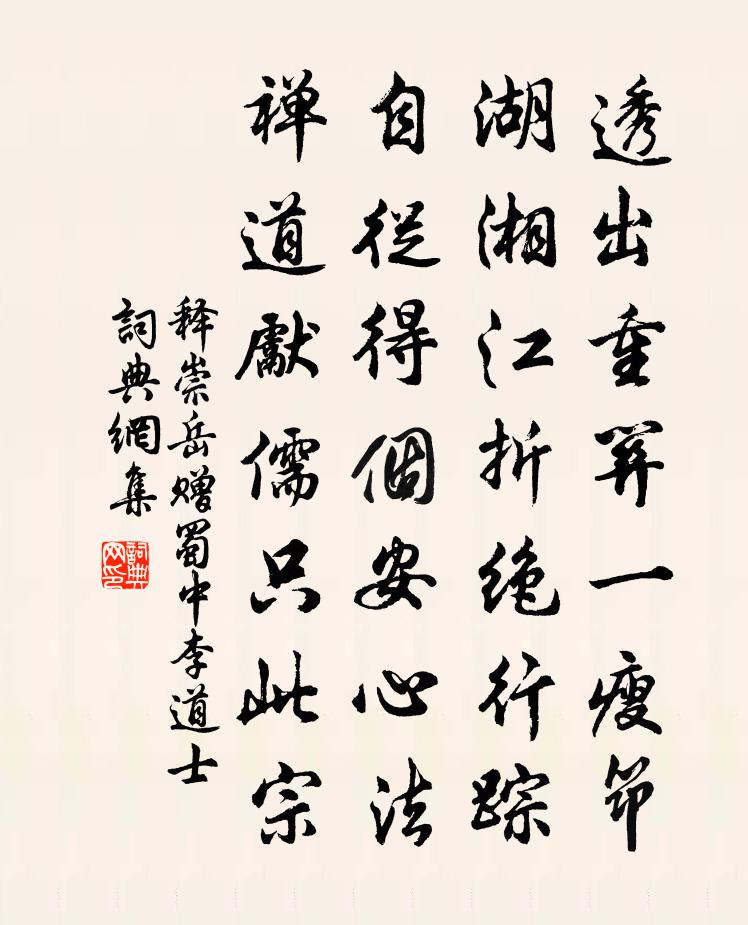 透出重關一瘦筇
湖湘江折絶行踪
自從得個安心法
禅道獻儒只此宗
释崇岳赠蜀中李道士
詞典網集
詞典
网印